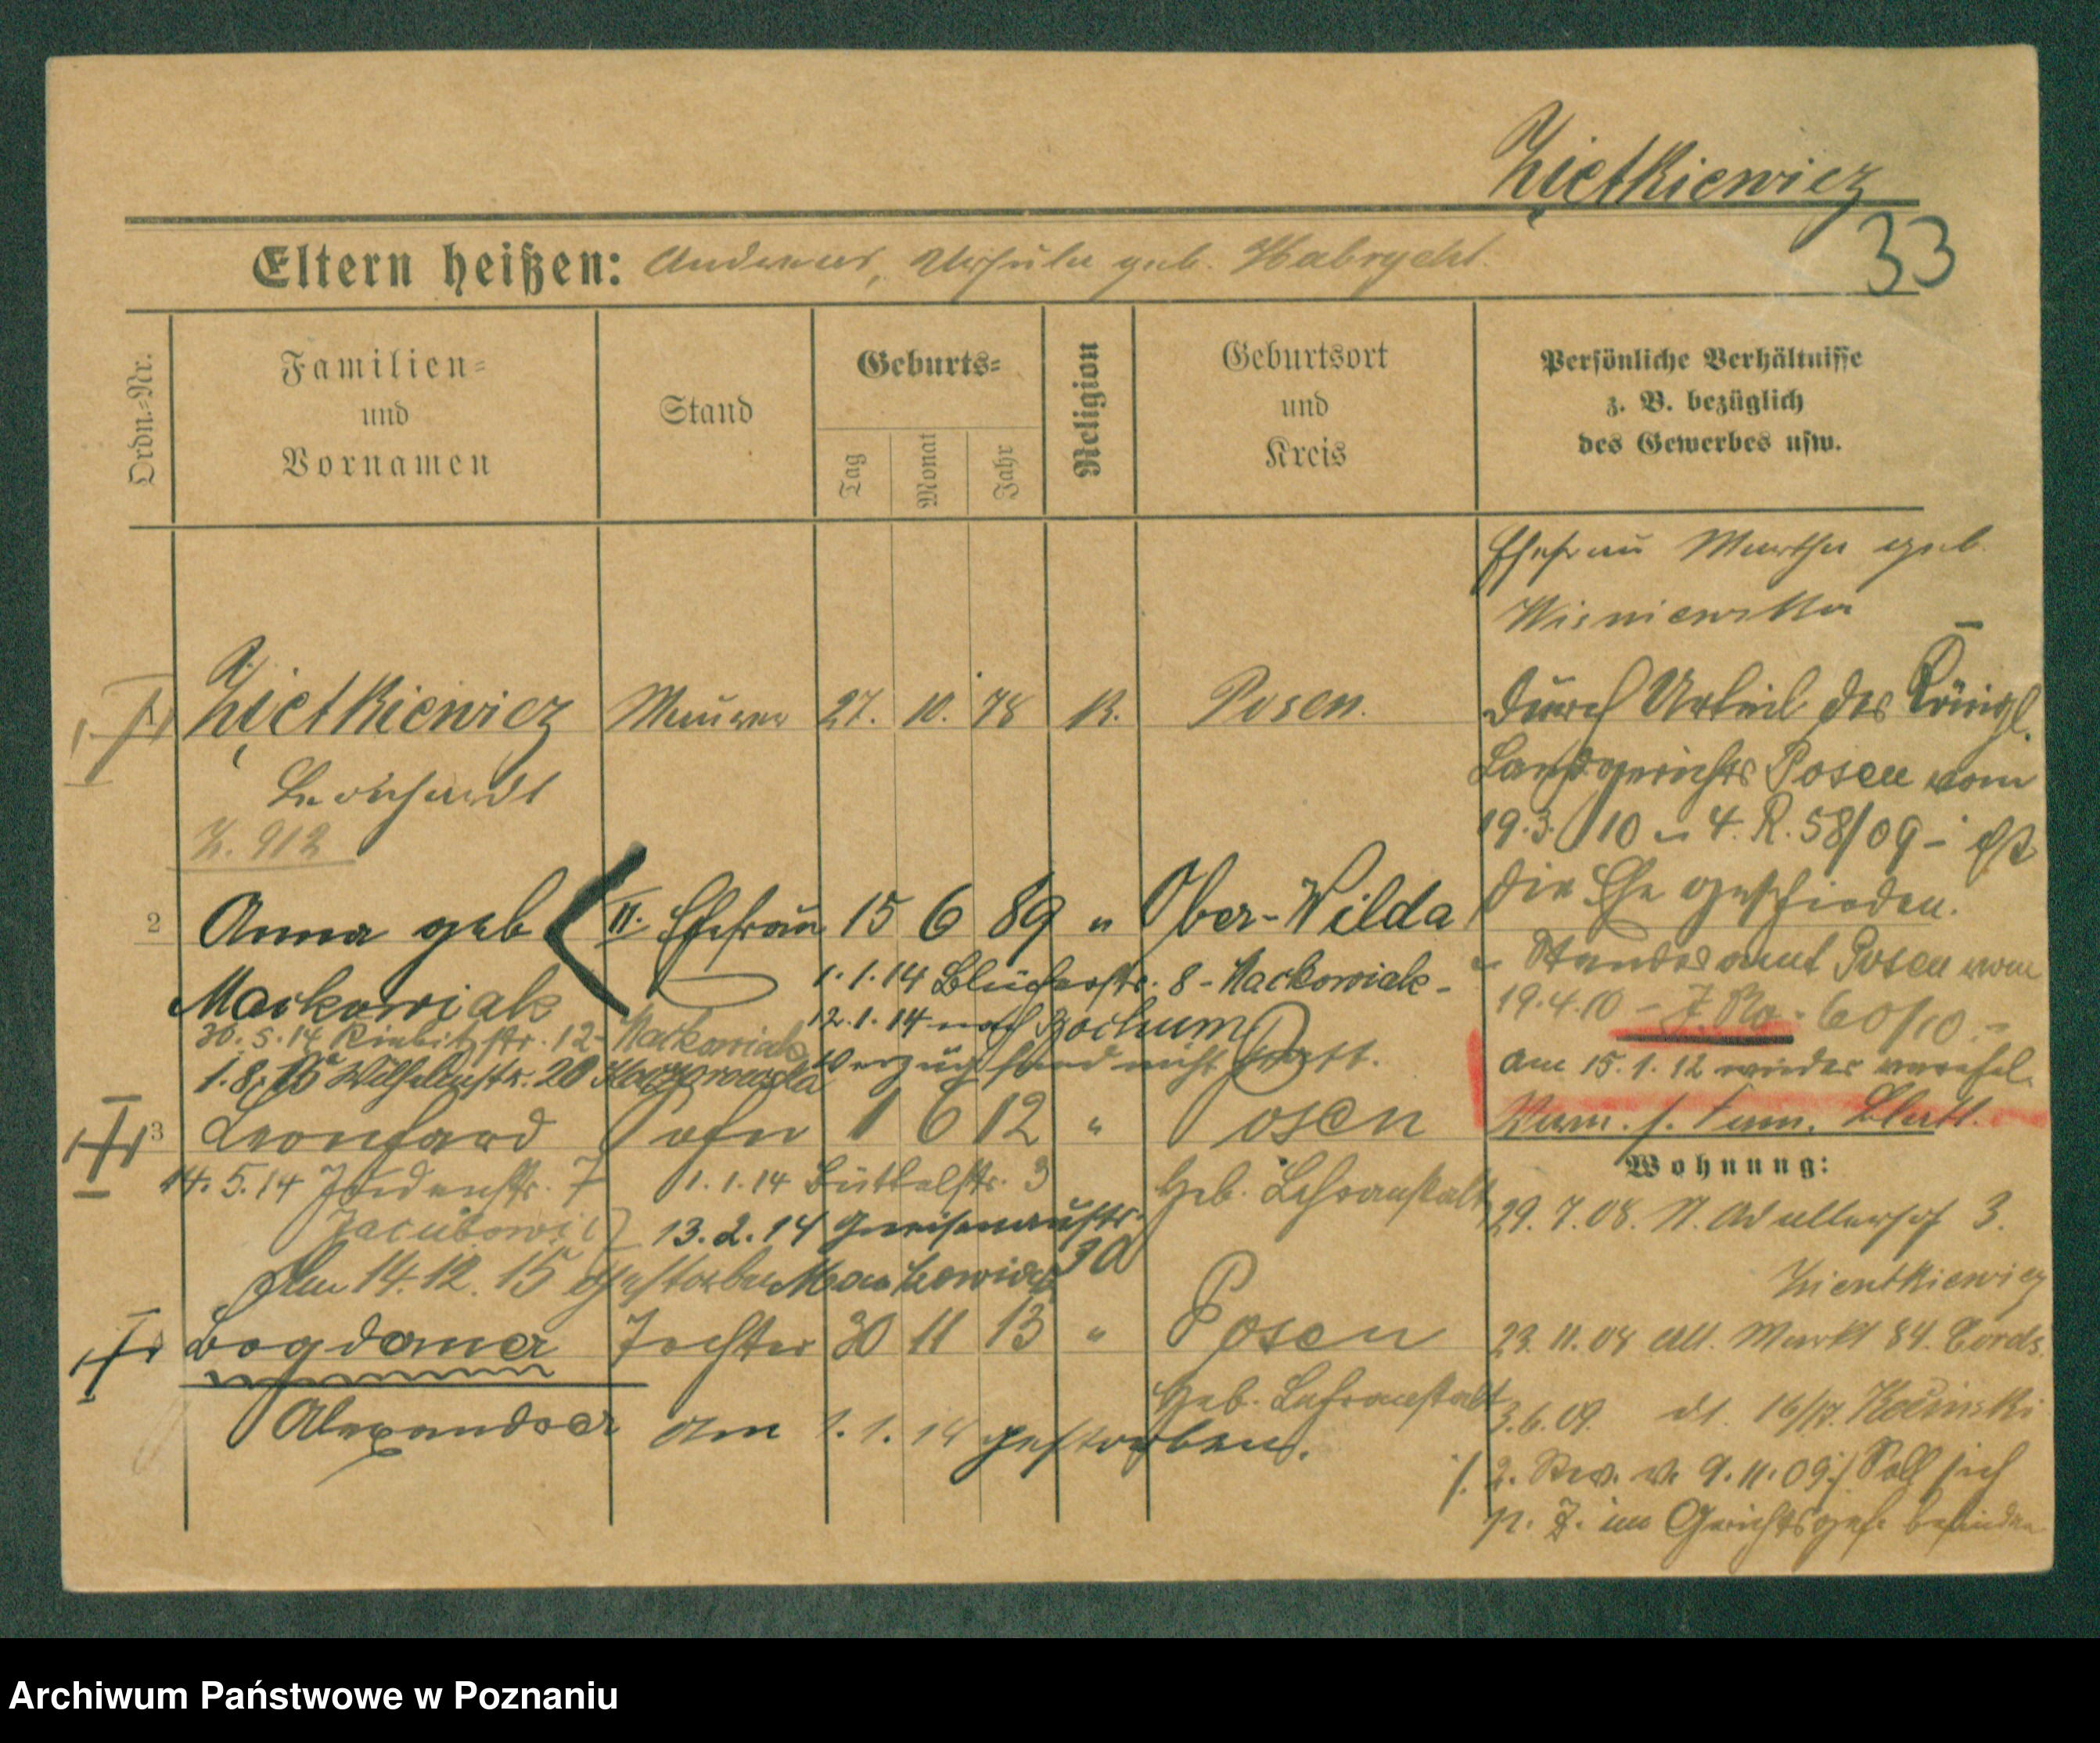 Ziętkiewicz
33
Eltern heißen: Andreas, Ursula geb. Habrycht.
Ordn.-Nr.
Familien-
und
Vornamen
Stand
Geburts-
Tag
Monat
Jahr
Religion
Geburtsort
und
Kreis
Persönliche Verhältnisse
z. B. bezüglich
des Gewerbes usw.
Ehefrau Martha geb.
Wisniewska
1 Ziętkiewicz Maurer 27. 10. 78 K. Posen.
Leonhardt
Z. 912
Durch Urteil des Königl.
Landgerichts Posen vom
19.3.10 – 4. R. 58/09 – ist
die Ehe geschieden.
2 Anna geb II. Ehefrau 15 6 89 " Ober-Wilda
Mackowiak
1.1.14 Blücherstr. 8 - Mackowiak -
12.1.14 nach Bochum
Verzug fand nicht statt.
30.5.14 str. 12 - Mackowiak
1.8.15 Wilhelmstr. 20
Standesamt Posen vom
19.4.10 - 60/10 -
am 15.1.12 wieder verehel.
Blatt.
3 Leonhard Sohn 1 6 12 " Posen
Geb. Lehranstalt
14.5.14 Judenstr. 7
1.1.14 Büttelstr. 3
Jacubowicz
13.2.14 Gneisenaustr.
Am 14.12.15 gestorben
Bogdana Tochter 30 11 13 " Posen
Geb. Lehranstalt
Alexandra am 1.1.14 gestorben.
Wohnung:
29.7.08. N. Adallerhof 3.
Zientkiewicz
23.11.08 Alt. Markt 84. Cords.
3.6.09. dt. 16/17. Kocinski
/. 2. Rev. v. 9.11.09 / Soll sich
p. Z. im Gerichtsgef. befinden
Archiwum Państwowe w Poznaniu